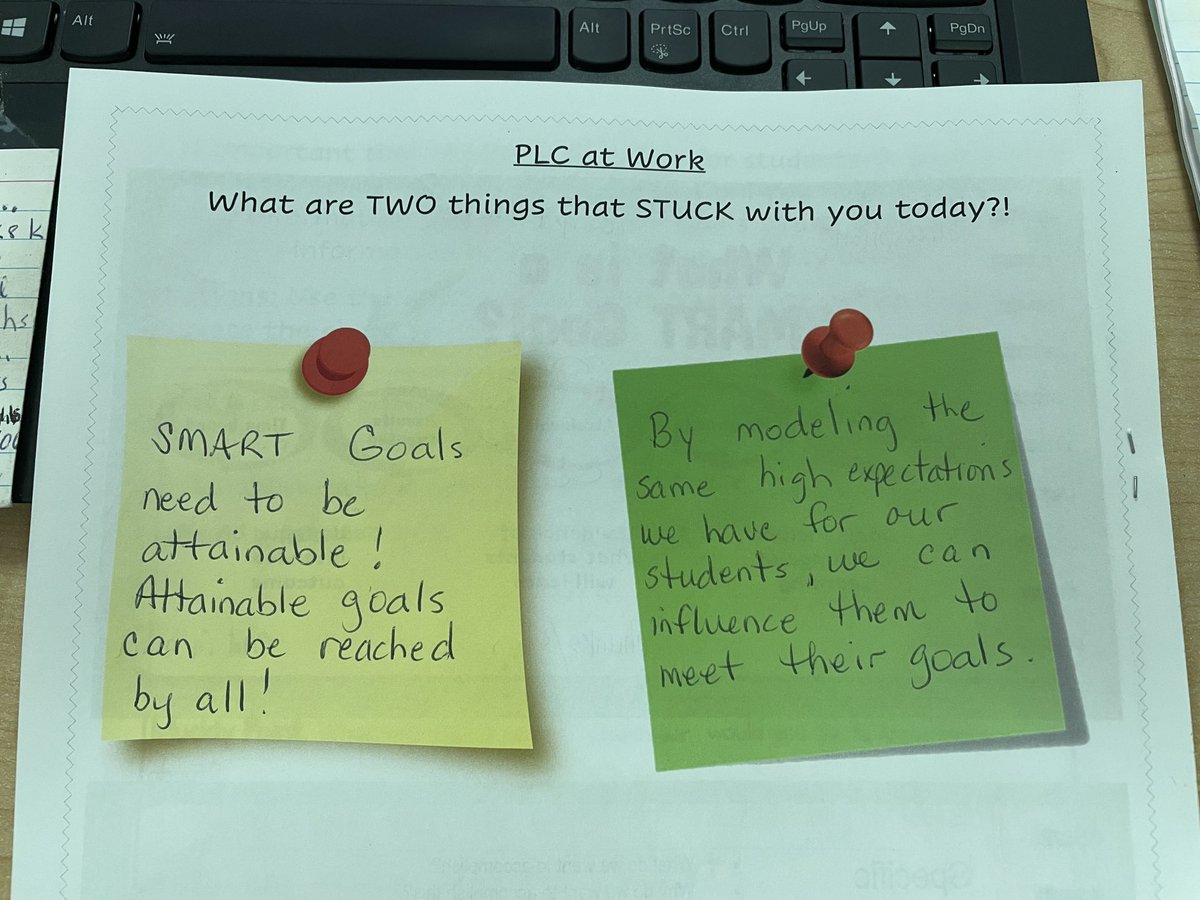 Alt
Alt
PrtSc
Ctrl
PgUp
PgDn
PLC at Work
What are TWO things that STUCK with you today?!
SMART Goals
need to be
attainable!
Attainable goals
can be reached
by all!
By modeling the
same high expectations
we have for our
students, we can
influence them to
meet their goals.
What is a
SMART Goal?
Specific